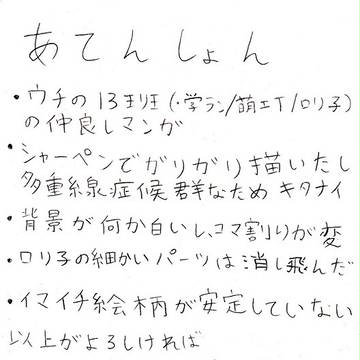 あてんしょん
・ウチの13班(・学ラン/萌エT/ロリ子)
の仲良しマンガ
・シャーペンでガリガリ描いたし
多重線症候群なためキタナイ
・背景が何か白いし、コマ割りが変
・ロリ子の細かいパーツは消し飛んだ
・イマイチ絵柄が安定していない
以上がよろしければ